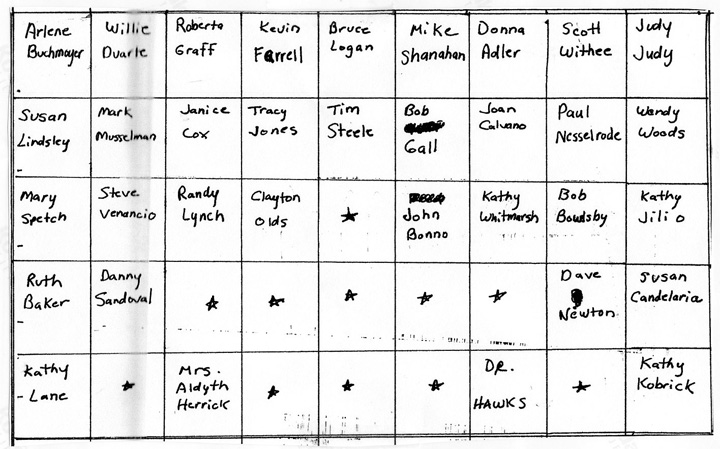 Arlene
Buchmayer
Willie
Duarte
Roberta
Graff
Kevin
Farrell
Bruce
Logan
Mike
Shanahan
Donna
Adler
Scott
Withee
Judy
Judy
Susan
Lindsley
Mark
Musselman
Janice
Cox
Tracy
Jones
Tim
Steele
Bob
Gall
Joan
Calvano
Paul
Nesselrode
Wendy
Woods
Mary
Spetch
Steve
Venancio
Randy
Lynch
Clayton
Olds
John
Bonno
Kathy
Whitmarsh
Bob
Bowlsby
Kathy
Jilio
Ruth
Baker
Danny
Sandoval
Dave
Newton
Susan
Candelaria
Kathy
Lane
Mrs.
Aldyth
Herrick
DR.
HAWKS
Kathy
Kobrick